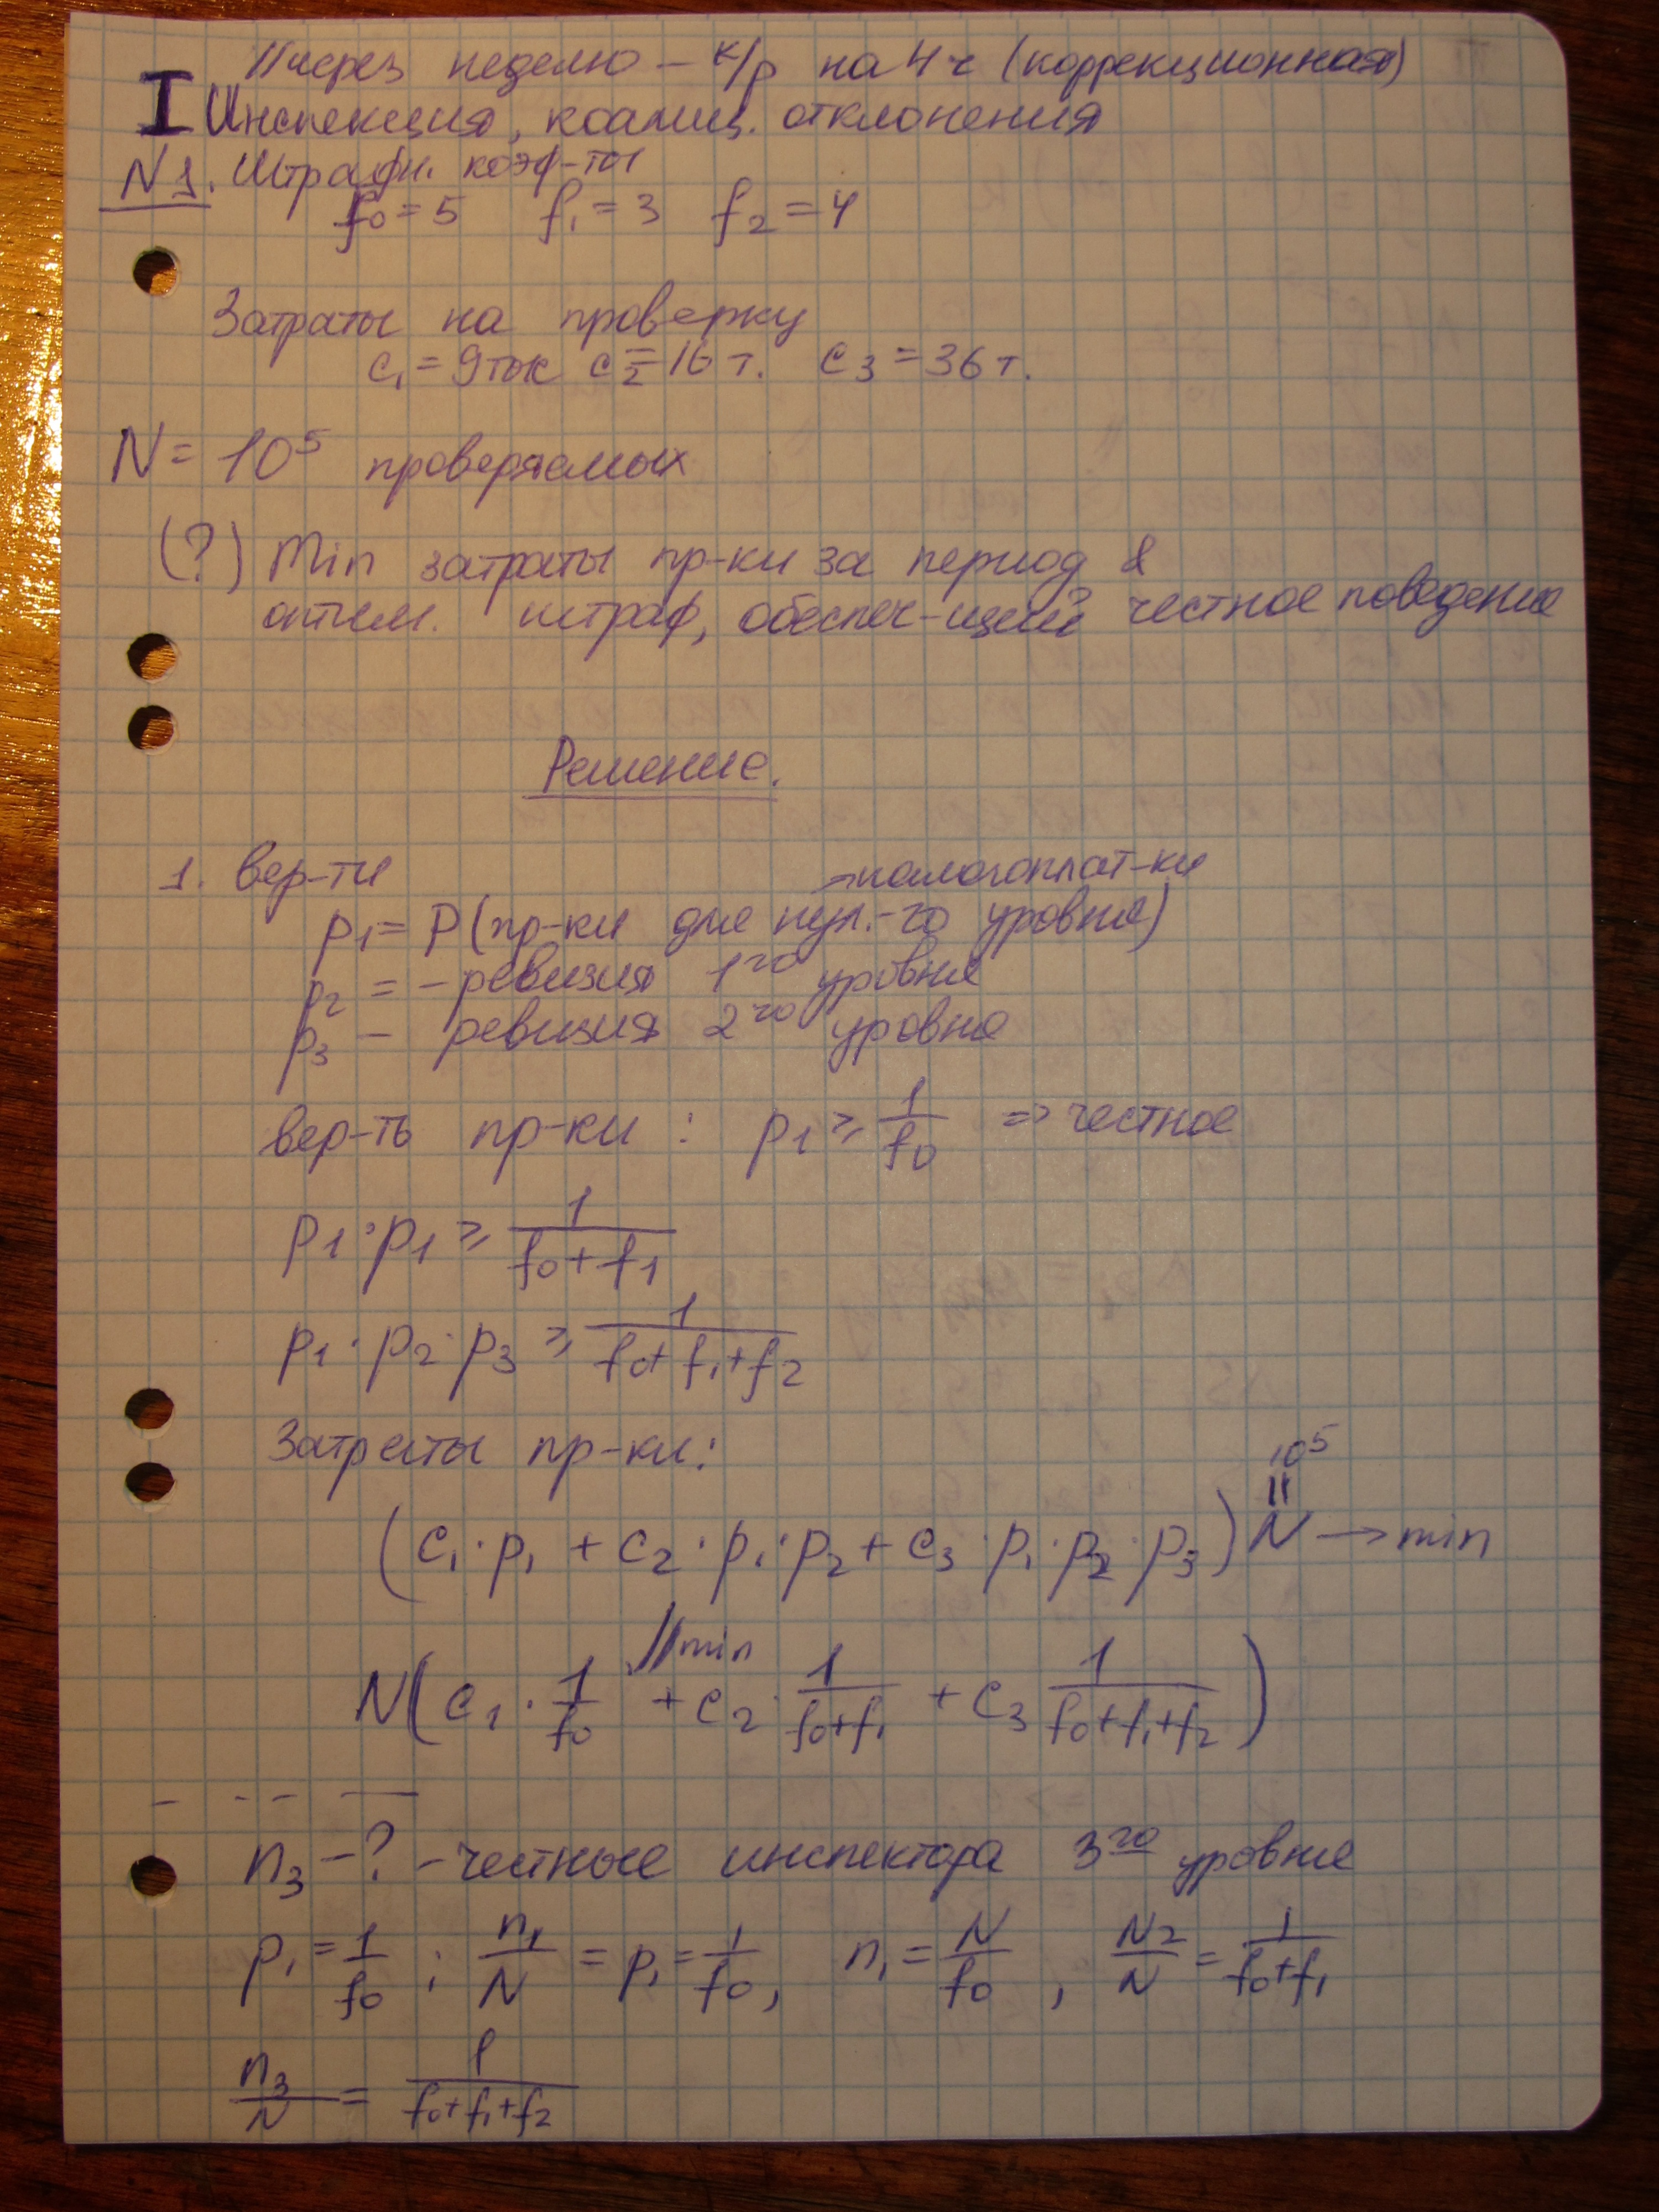 // через неделю – к/р на 4 ч (коррекционная)
I Инспекция, коалиц. отклонения
N1. Штрафн. коэф-ты
f₀ = 5 f₁ = 3 f₂ = 4
Затраты на проверку
c₁ = 9 тыс c₂ = 16 т. c₃ = 36 т.
N = 10⁵ проверяемых
(?) Min затраты пр-ки за период &
оптим. штраф, обеспеч-щий честное поведение
Решение.
1. вер-ти →налогоплат-ки
p₁ = P(пр-ки для нул.-го уровня)
p₂ = – ревизия 1го уровня
p₃ – ревизия 2го уровня
вер-ть пр-ки : p₁ ≥ 1/f₀ => честное
p₁·p₁ ≥ 1/(f₀+f₁)
p₁·p₂·p₃ ≥ 1/(f₀+f₁+f₂)
Затраты пр-ки:
10⁵
||
(c₁·p₁ + c₂·p₁·p₂ + c₃·p₁·p₂·p₃) N → min
// min
N(c₁·1/f₀ + c₂·1/(f₀+f₁) + c₃ 1/(f₀+f₁+f₂))
– - - —
n₃ – ? – честные инспектора 3го уровня
p₁ = 1/f₀ ; n₁/N = p₁ = 1/f₀, n₁ = N/f₀ , N₂/N = 1/(f₀+f₁)
n₃/N = 1/(f₀+f₁+f₂)